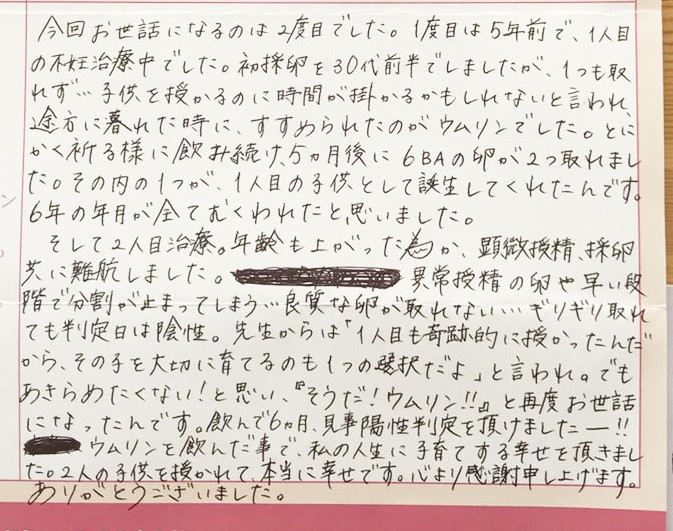 今回お世話になるのは2度目でした。1度目は5年前で、1人目
の不妊治療中でした。初採卵を30代前半でしましたが、1つも取
れず…子供を授かるのに時間が掛かるかもしれないと言われ、
途方に暮れた時に、すすめられたのがウムリンでした。とに
かく祈る様に飲み続け、5ヵ月後に6BAの卵が2つ取れまし
た。その内の1つが、1人目の子供として誕生してくれたんです。
6年の年月が全てむくわれたと思いました。
そして2人目治療。年齢も上がった為か、顕微授精、採卵
共に難航しました。異常授精の卵や早い段
階で分割が止まってしまう…良質な卵が取れない…ギリギリ取れ
ても判定日は陰性。先生からは「1人目も奇跡的に授かったんだ
から、その子を大切に育てるのも1つの選択だよ」と言われ。でも
あきらめたくない!と思い、『そうだ!ウムリン!!』と再度お世話
になったんです。飲んで6ヵ月、見事陽性判定を頂けましたー!!
ウムリンを飲んだ事で、私の人生に子育てする幸せを頂きまし
た。2人の子供を授かれて、本当に幸せです。心より感謝申し上げます。
ありがとうございました。